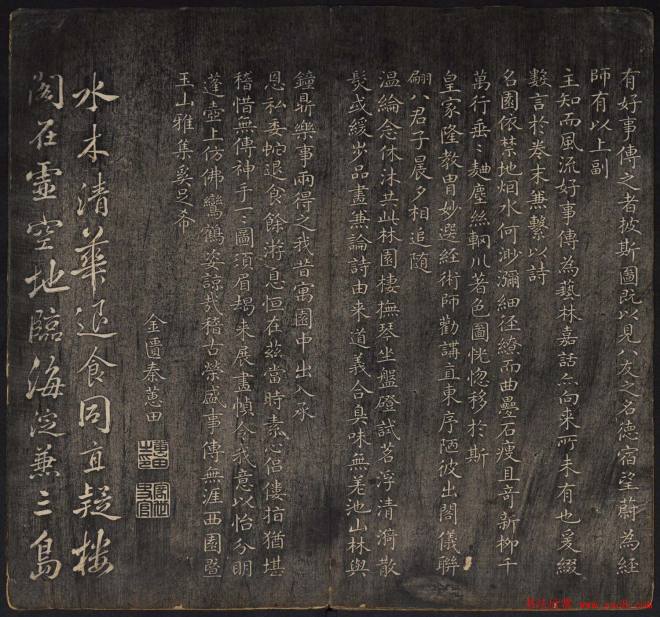 有好事傳之者披斯圖既以見八友之名德宿望蔚為經
師有以上副
主知而風流好事傳為藝林嘉話亦向来所未有也爰綴
數言於卷末兼繫以詩
名園依禁地烟水何渺瀰細徑繚而曲疊石瘦且奇新柳千
萬行垂〻麯塵絲輞川著色圖恍惚移於斯
皇家隆教胄妙選経術師勸講直東序陋彼出閤儀聯
翩八君子晨夕相追隨
溫綸念休沐共此林園棲撫琴坐盤磴試茗浮清漪散
髮或緩步品畫兼論詩由来道義合臭味無差池山林與
鐘鼎樂事兩得之我昔寓園中出入承
恩私委蛇退食餘游息恒在茲當時素心侶僂指猶堪
稽惜無傳神手一〻圖須眉朅来展畫幀令我意以怡分明
蓬壺上仿佛鸞鶴姿諒哉稽古榮盛事傳無涯西園暨
玉山雅集奚足希
金匱秦蕙田
蕙田之印
水木清華退食同直疑樓
閣在靈空地臨海淀兼三島